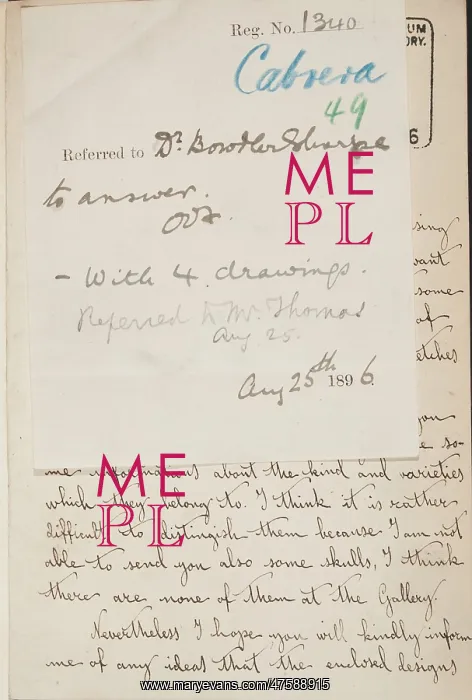 Reg. No. 1340
UM
ORY.
Cabrera
49
6
Referred to Dr. Bowdler Sharpe
to answer.
ME
PL
- With 4 drawings.
Referred to Mr. Thomas
Aug 25.
Aug 25th 1896.
sing
want
some
of
etches
you
e so-
ME
PL
me informations about the kind and varieties
which they belong to. I think it is rather
difficult to distingish them because I am not
able to send you also some skulls, I think
there are none of them at the Gallery.
Nevertheless I hope you will kindly inform
me of any ideas that the enclosed designs
www.maryevans.com/47588915